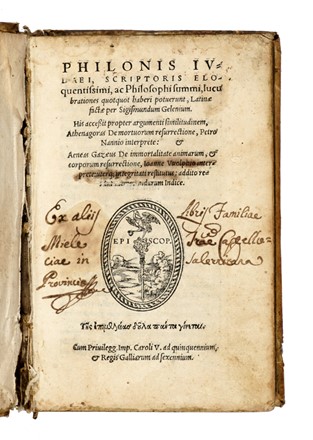 PHILONIS IV-
DAEI, SCRIPTORIS ELO
quentissimi, ac Philosophi summi, lucu
brationes quotquot haberi potuerunt, Latinæ
factæ per Sigismundum Gelenium.
His accessit propter argumenti similitudinem,
Athenagoras De mortuorum resurrectione, Petro
Nannio interprete: &
Aeneas Gazæus De immortalitate animarum, &
corporum resurrectione, Ioanne
prete: integritati restitutus: addito re
rum Indice.
Ex alijs
Miele
ciae in
Provincia
Libris Familiae
Salernitana
EPI SCOP.
Cum Privilegg. Imp. Caroli V. ad quinquennium,
& Regis Galliarum ad sexennium.